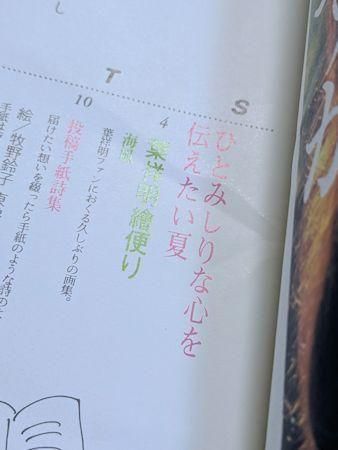 T S
ひとみしりな心を
伝えたい夏
4
葉祥明繪便り
葉祥明ファンにおくる久しぶりの画集。
10
投稿手紙詩集
届けたい想いを綴ったら手紙のような詩の
絵/牧野鈴子